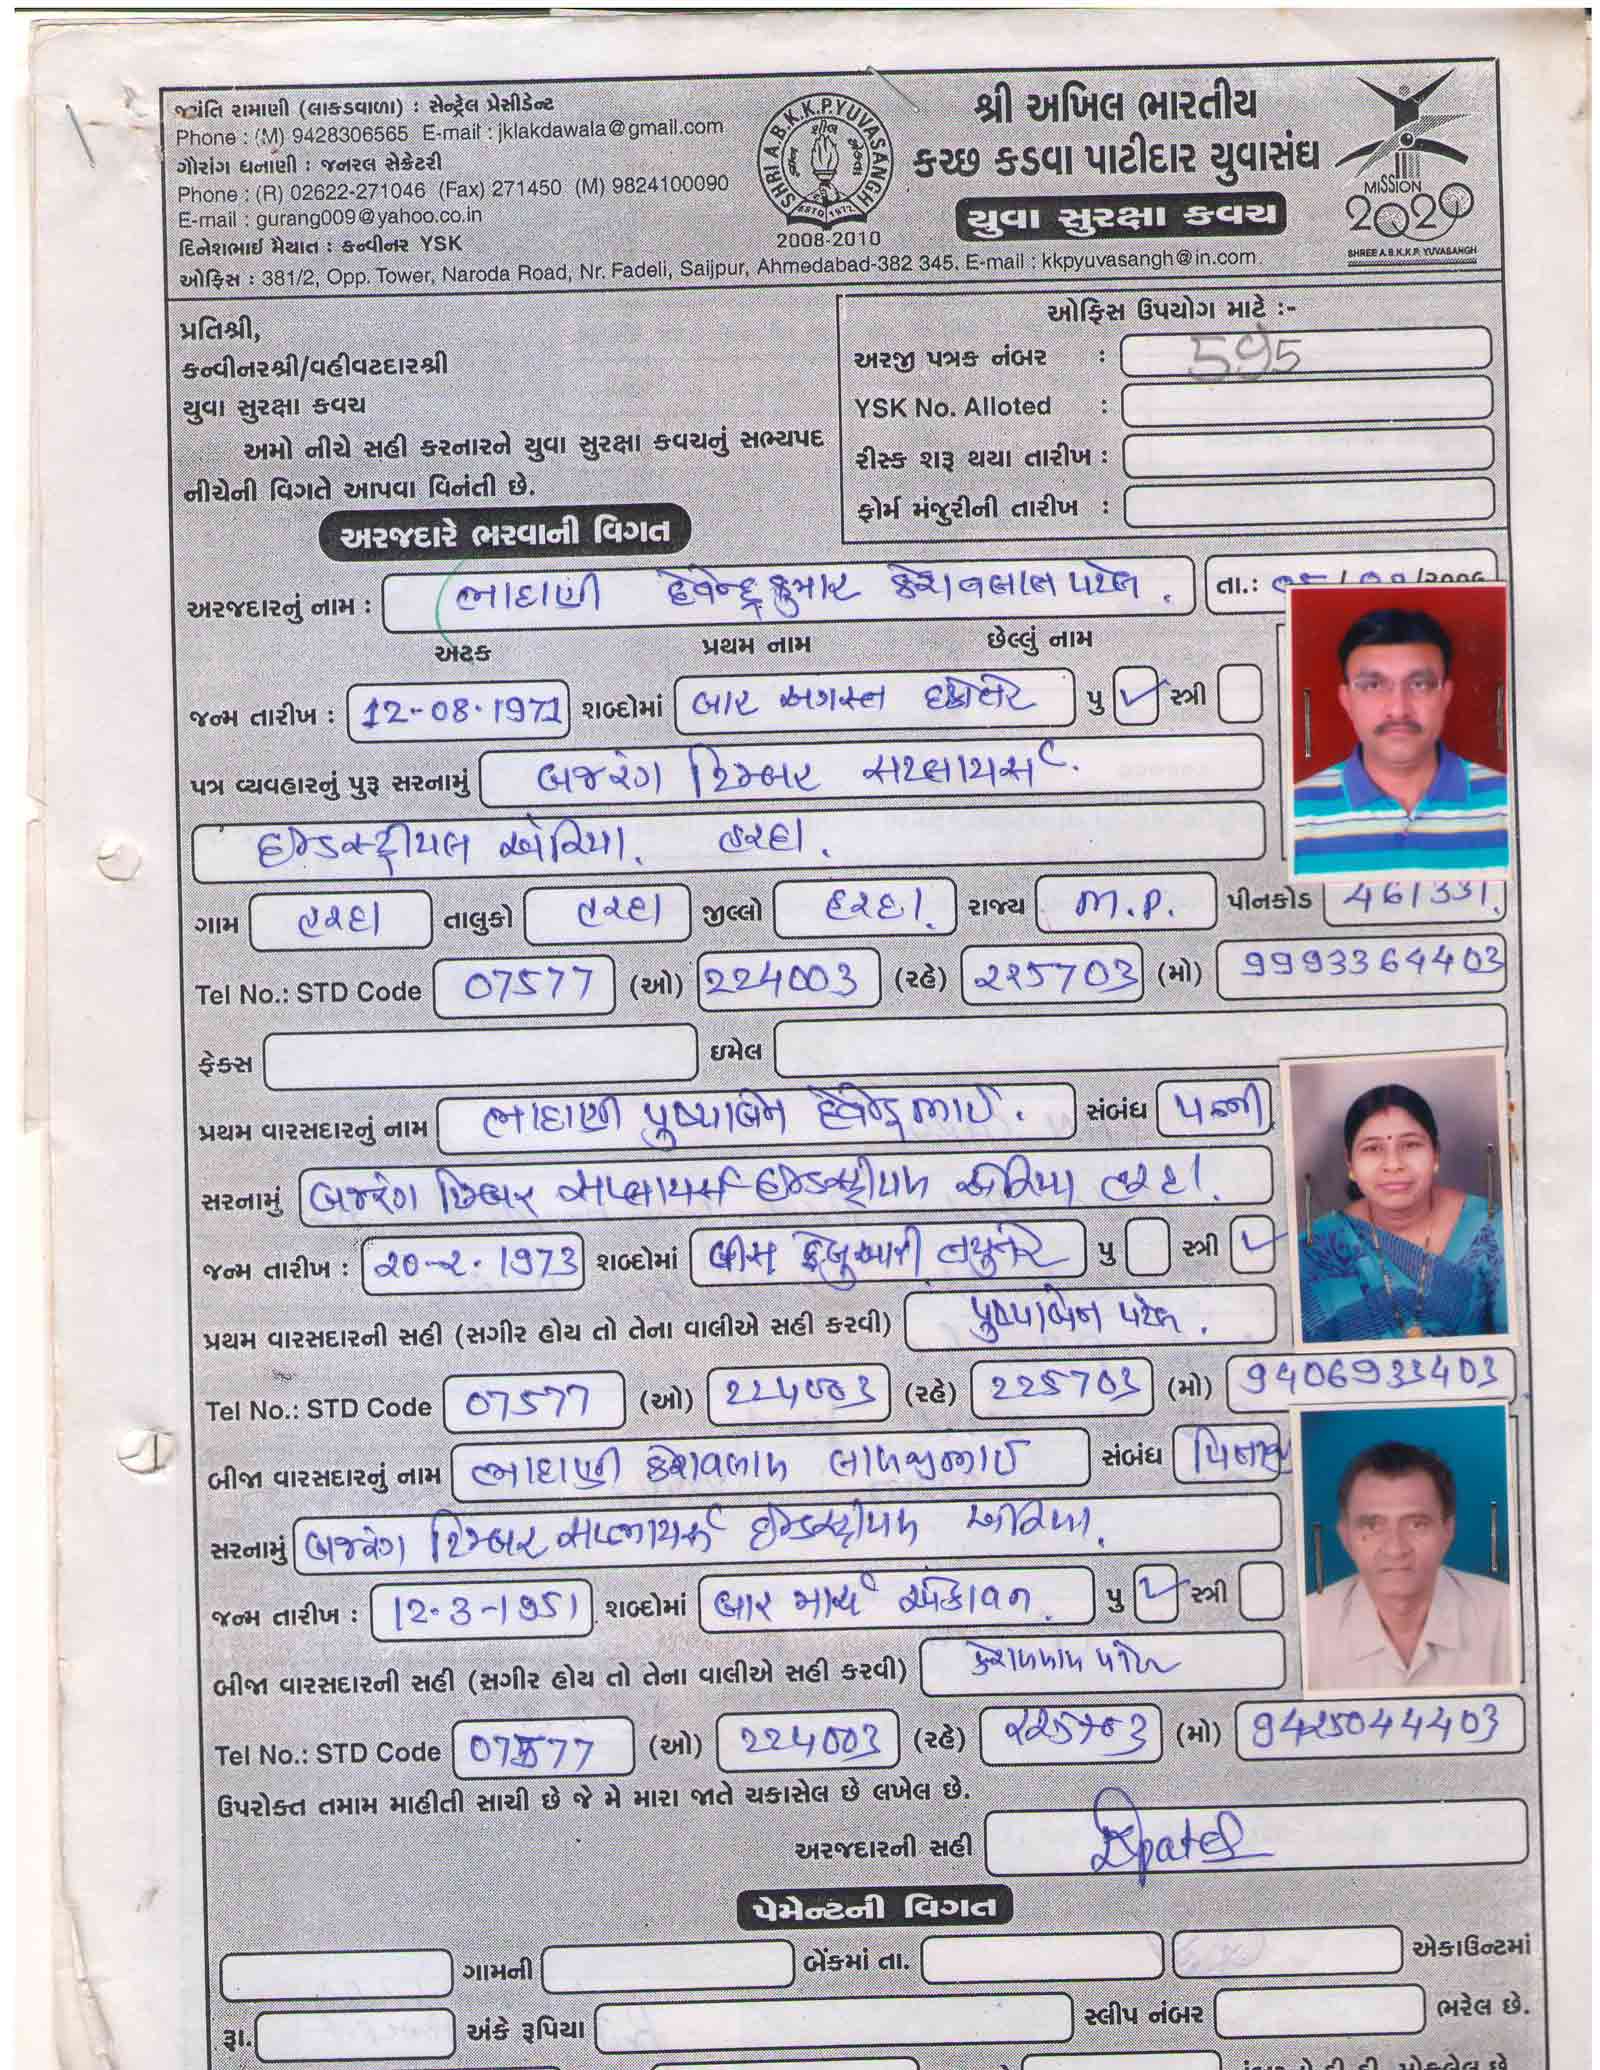 જયંતિ રામાણી (લાકડાવાળા) : સેન્ટ્રેલ પ્રેસીડેન્ટ
Phone : (M) 9428306565 E-mail : jklakdawala@gmail.com
ગૌરાંગ ધનાણી : જનરલ સેક્રેટરી
Phone : (R) 02622-271046 (Fax) 271450 (M) 9824100090
E-mail : gurang009@yahoo.co.in
દિનેશભાઈ મૈયાત : કન્વીનર YSK
ઓફિસ : 381/2, Opp. Tower, Naroda Road, Nr. Fadeli, Saijpur, Ahmedabad-382 345. E-mail : kkpyuvasangh@in.com.
SHRI A.B.K.K.P. YUVASANGH
ESTD 1972
2008-2010
શ્રી અખિલ ભારતીય
કચ્છ કડવા પાટીદાર યુવાસંઘ
યુવા સુરક્ષા કવચ
MISSION
2020
SHREE A.B.K.K.P. YUVASANGH
પ્રતિશ્રી,
કન્વીનરશ્રી/વહીવટદારશ્રી
યુવા સુરક્ષા કવચ
અમો નીચે સહી કરનારને યુવા સુરક્ષા કવચનું સભ્યપદ
નીચેની વિગતે આપવા વિનંતી છે.
ઓફિસ ઉપયોગ માટે :-
અરજી પત્રક નંબર : 595
YSK No. Alloted :
રીસ્ક શરૂ થયા તારીખ :
ફોર્મ મંજુરીની તારીખ :
અરજદારે ભરવાની વિગત
અરજદારનું નામ : ભાદાણી દેવેન્દ્રકુમાર કેશવલાલ પટેલ. તા.:
અટક પ્રથમ નામ છેલ્લું નામ
જન્મ તારીખ : 12-08-1971 શબ્દોમાં બાર અગસ્ત ઇકોતેર પુ ✓ સ્ત્રી
પત્ર વ્યવહારનું પુરૂ સરનામું બજરંગ ટિમ્બર સપ્લાયર્સ.
ઇન્ડસ્ટ્રીયલ એરિયા. હરદા.
ગામ હરદા તાલુકો હરદા જીલ્લો હરદા. રાજ્ય M.P. પીનકોડ 461331.
Tel No.: STD Code 07577 (ઓ) 224003 (રહે) 225703 (મો) 9993364403
ફેક્સ ઇમેલ
પ્રથમ વારસદારનું નામ ભાદાણી પુષ્પાબેન દેવેન્દ્રભાઈ. સંબંધ પત્ની
સરનામું બજરંગ ટિમ્બર સપ્લાયર્સ ઇન્ડસ્ટ્રીયલ એરિયા હરદા.
જન્મ તારીખ : 20-2-1973 શબ્દોમાં વીસ ફેબ્રુઆરી તયુતેર પુ સ્ત્રી ✓
પ્રથમ વારસદારની સહી (સગીર હોય તો તેના વાલીએ સહી કરવી) પુષ્પાબેન પટેલ.
Tel No.: STD Code 07577 (ઓ) 224003 (રહે) 225703 (મો) 9406933403
બીજા વારસદારનું નામ ભાદાણી કેશવલાલ લાલજીભાઈ સંબંધ પિતા
સરનામું બજરંગ ટિમ્બર સપ્લાયર્સ ઇન્ડસ્ટ્રીયલ એરિયા.
જન્મ તારીખ : 12-3-1951 શબ્દોમાં બાર માર્ચ એકાવન. પુ ✓ સ્ત્રી
બીજા વારસદારની સહી (સગીર હોય તો તેના વાલીએ સહી કરવી) કેશવલાલ પટેલ
Tel No.: STD Code 07577 (ઓ) 224003 (રહે) 225703 (મો) 9425044403
ઉપરોક્ત તમામ માહીતી સાચી છે જે મે મારા જાતે ચકાસેલ છે લખેલ છે.
અરજદારની સહી Dpatel
પેમેન્ટની વિગત
ગામની બેંકમાં તા. એકાઉન્ટમાં
રૂા. અંકે રૂપિયા સ્લીપ નંબર ભરેલ છે.